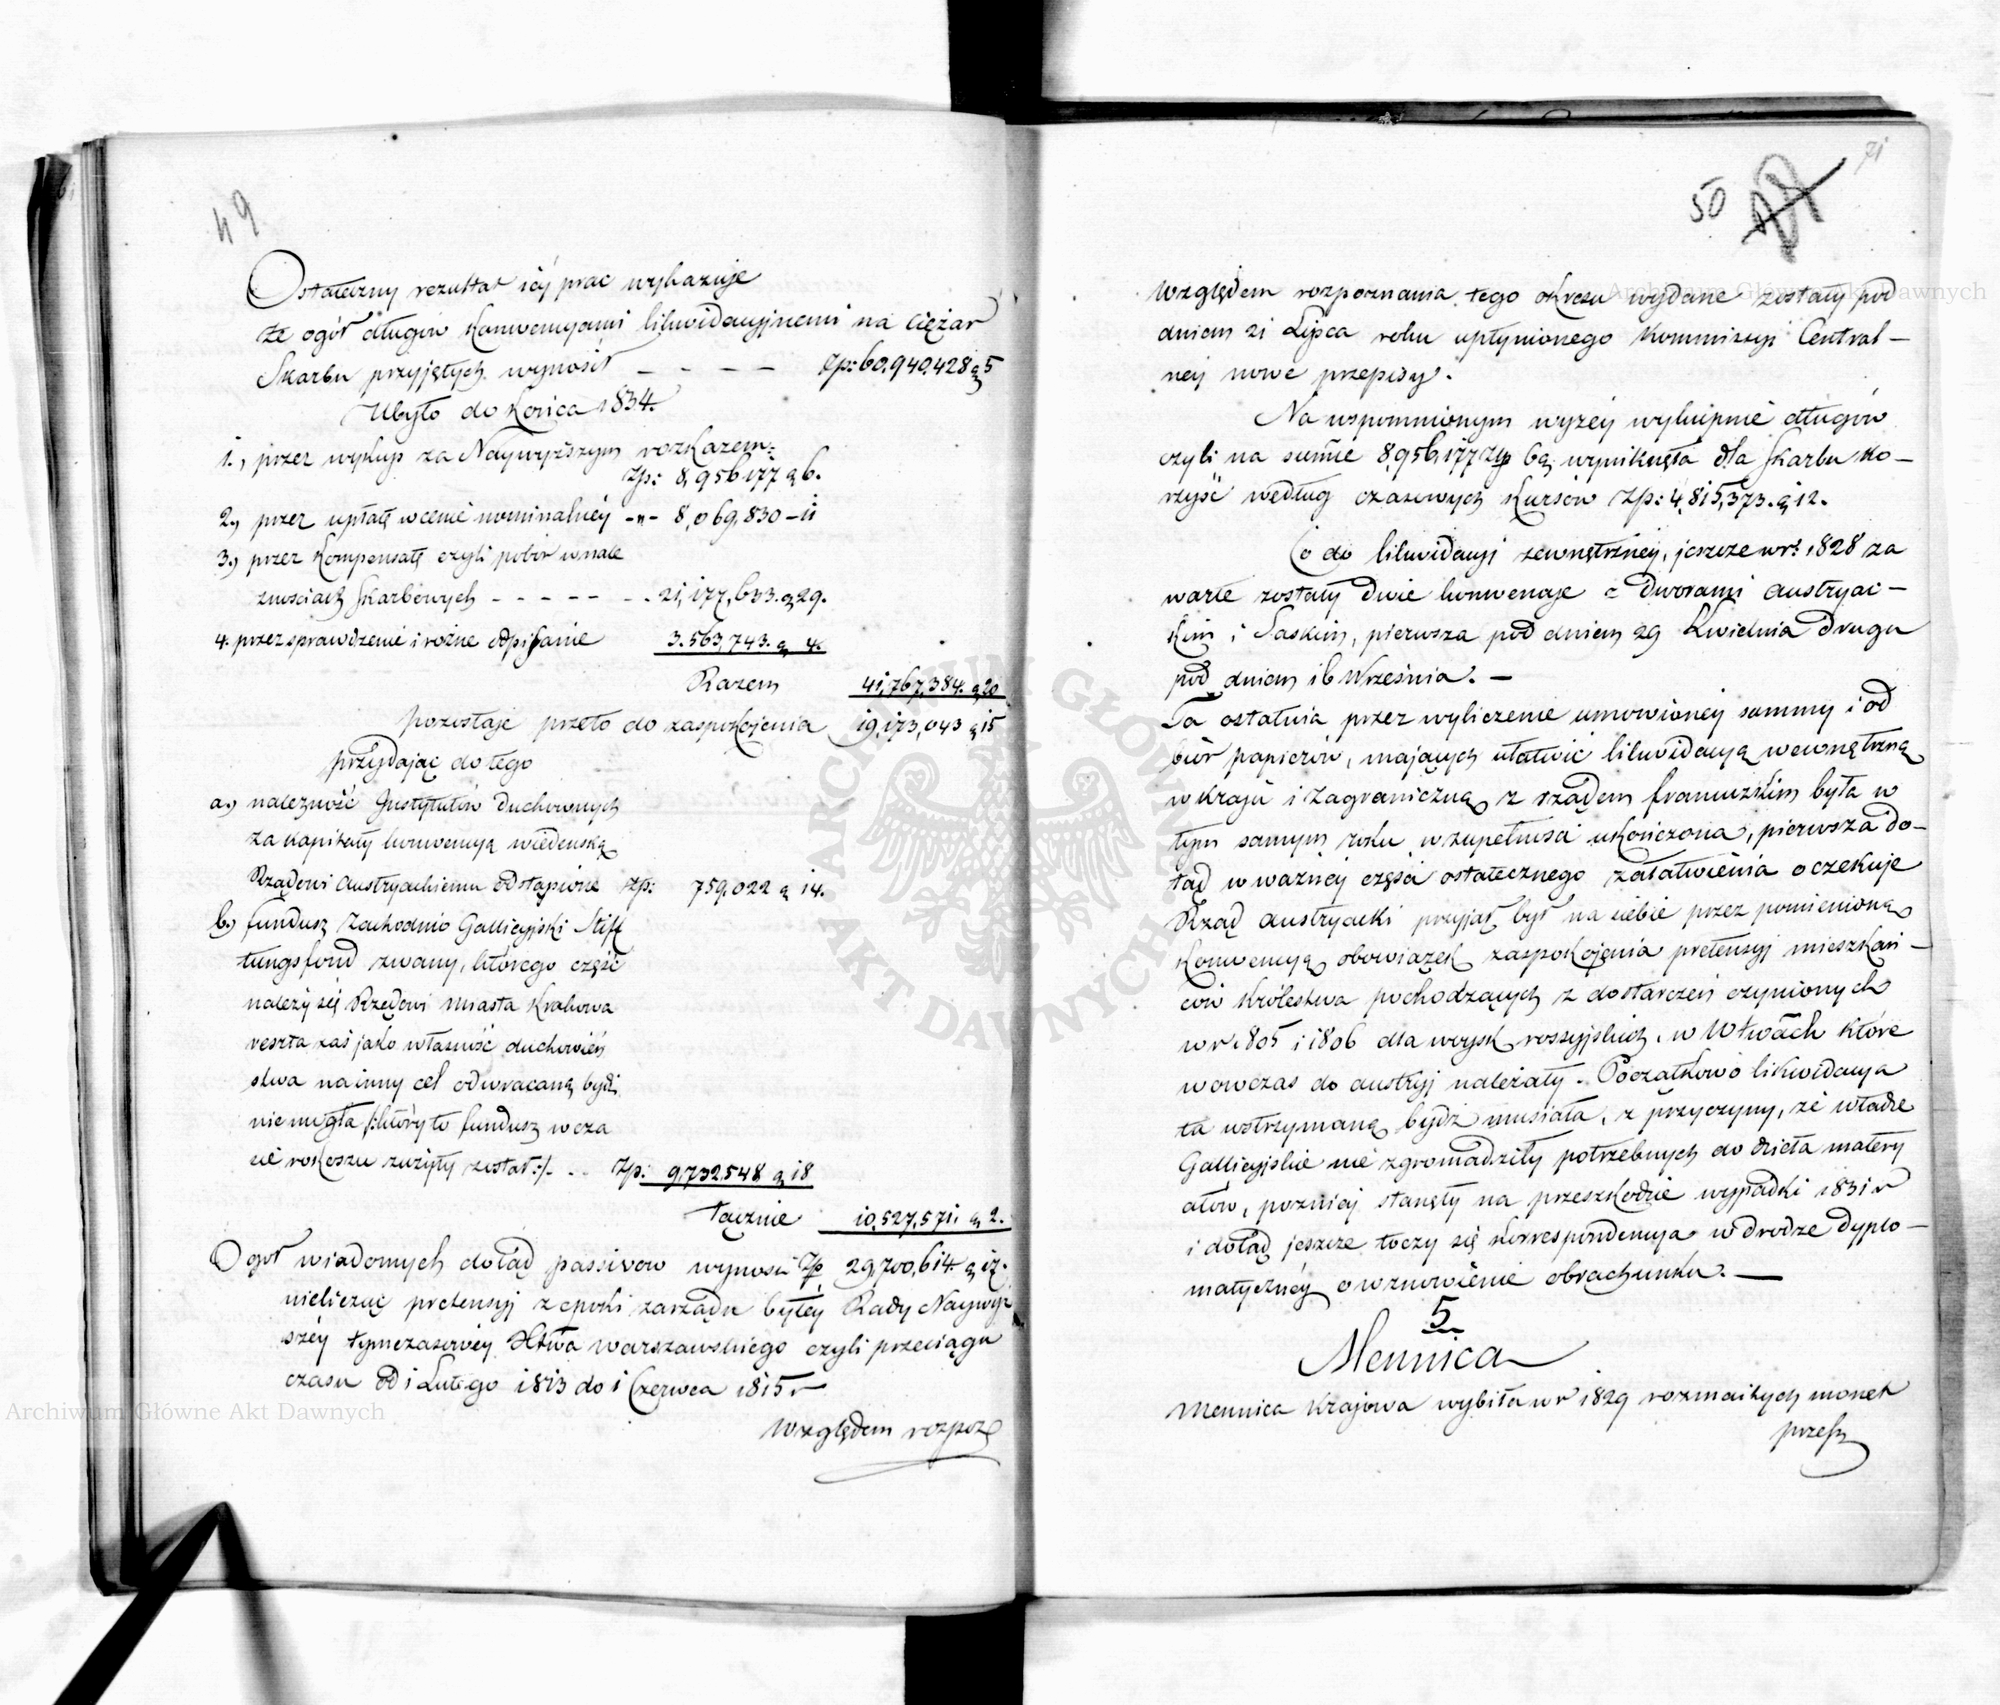 49
Ostateczny rezultat iéj prac wykazuje
że ogół długów Konwencyami likwidacyjnemi na ciężar
Skarbu przyjętych wynosił - - - - Zp: 60.940.428 g 5
Ubyło do Końca 1834.
1., przez wykup za Naywyższym rozkazem:
Zp: 8,956,177 g 6.
2., przez upłatę w cenie nominalnéj -"- 8,069,830 - 11
3., przez Kompensatę czyli pobór w nale
znościach Skarbowych - - - - - - 21,177,633. g 29.
4. przez sprawdzenie i rożne odpisanie 3.563,743. g 4.
Razem 41,767,384. g 20
pozostaje przeto do zaspokojenia 19,173,043 g 15
przydając do tego
a., należność Instytutów Duchownych
za Kapitały konwencyą wiedeńską
Rządowi Austryackiemu odstąpione Zp: 759,022 g 14.
b., fundusz Zachodnio Gallicyjski Stif
tungsfond zwany, którego część
należy się Rządowi miasta Krakowa
reszta zaś jako własność duchowień
stwa na inny cel odwracaną bydź
nie mogła /:który to fundusz w cza
sie rokoszu zużyty został:/ - - Zp: 9,732,548 g 18
łącznie 10,527,571. g 2.
Ogół wiadomych dotąd passivow wynosi Zp 29,700,614 g 17.
nielicząc pretensyj z epoki zarządu byłéj Rady Naywyż
széy tymczasowéy Xtwa Warszawskiego czyli przeciągu
czasu od 1 Lutego 1813 do 1 Czerwca 1815 r
Względem rozpoz
71
50
względem rozpoznania tego okresu wydane zostały pod
dniem 21 Lipca roku upłynionego Kommissyi Central-
néj nowe przepisy.
Na wspomnionym wyżéj wykupnie długów
czyli na summie 8,956,177 Zp 6 g. wyniknęła dla Skarbu ko-
rzyść według czasowych Kursów Zp: 4,815,373. g 12.
Co do likwidacyi zewnętrznéj, jeszcze w r. 1828 za
warte zostały dwie konwencje z Dworami Austryac-
kim i Saskim, pierwsza pod dniem 29 Kwietnia druga
pod dniem 16 Września. -
Ta ostatnia przez wyliczenie umowionéj summy i od
biór papierów, mających ułatwić likwidacyą wewnętrzną
w Kraju i zagraniczną z rządem francuzkim była w
tym samym roku w zupełności ukończona, pierwsza do-
tąd w ważnéj części ostatecznego załatwienia oczekuje
Rząd Austryacki przyjął był na siebie przez pomienioną
Konwencyą obowiązek zaspokojenia pretensyj mieszkań-
ców Królestwa pochodzących z dostarczeń czynionych
w r. 1805 i 1806 dla woysk rossyjskich, w Wtwach które
wowczas do Austryj należały. Początkowo likwidacya
ta wstrzymaną bydź musiała, z przyczyny, że władze
Gallicyjskie nie zgromadziły potrzebnych do dzieła matery
ałów, pozniej stanęły na przeszkodzie wypadki 1831 r
i dotąd jeszcze toczy się korrespondencya w drodze dyplo-
matycznéj o wznowienie obrachunku. -
5.
Mennica
Mennica Krajowa wybiła w r 1829 rozmaitych monet
przesz